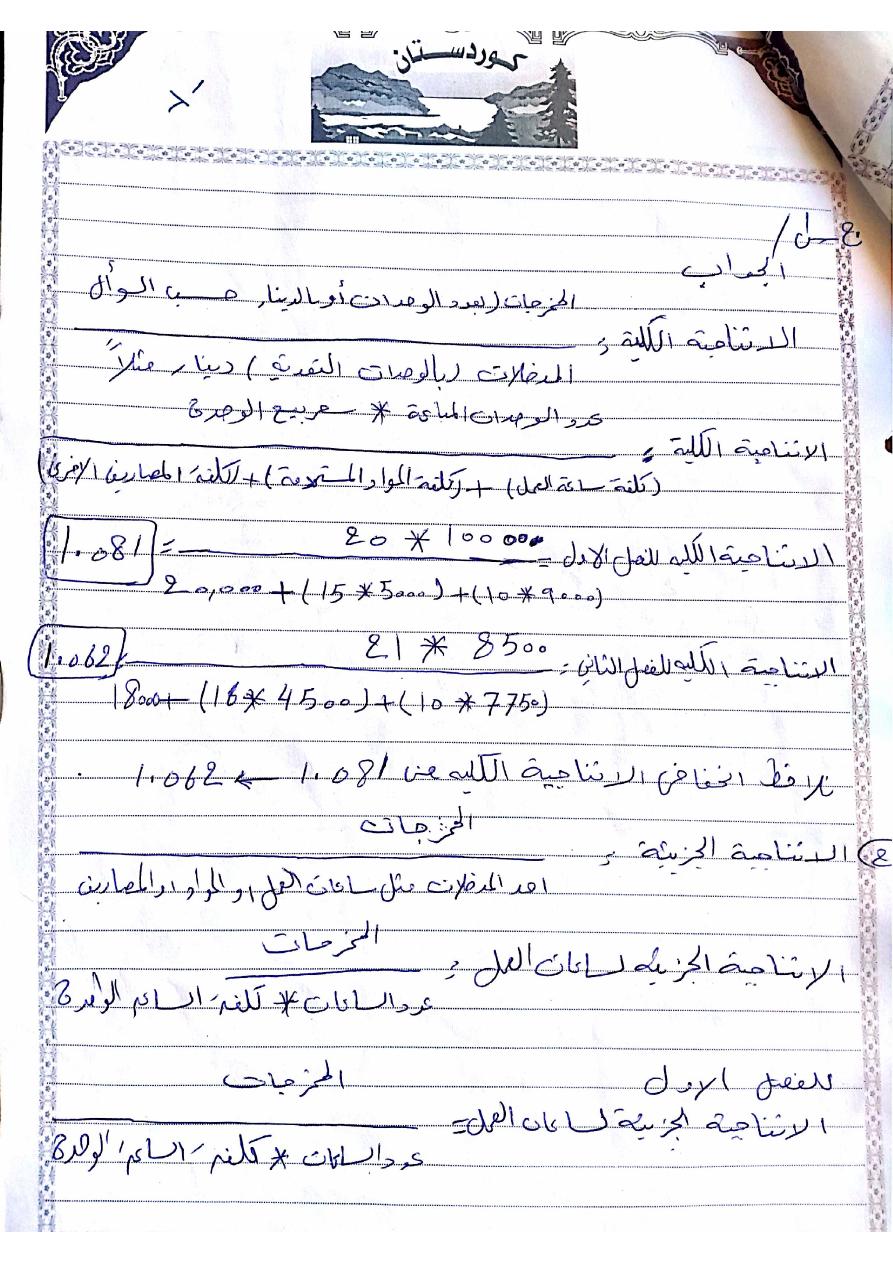 كوردستان
ج س١/
الجواب
المخرجات (بعدد الوحدات أو بالدينار حسب السؤال
الانتاجية الكلية =
المدخلات (بالوحدات النقدية) دينار مثلاً
عدد الوحدات المباعة * سعر بيع الوحدة
الانتاجية الكلية =
(كلفة ساعة العمل) + (كلفة المواد المستخدمة) + (كلفة المصاريف الاخرى)
20 * 100000
الانتاجية الكلية للفصل الاول = = 1.081
20,000 + (15*5000) + (10*9000)
21 * 8500
الانتاجية الكلية للفصل الثاني = = 1.062
18000 + (16*4500) + (10*7750)
نلاحظ انخفاض الانتاجية الكلية من 1.081 ← 1.062
المخرجات
2 الانتاجية الجزئية =
احد المدخلات مثل ساعات العمل او المواد او المصاريف
المخرجات
الانتاجية الجزئية لساعات العمل =
عدد الساعات * كلفة الساعة الواحدة
للفصل الاول
المخرجات
الانتاجية الجزئية لساعات العمل =
عدد الساعات * كلفة الساعة الواحدة